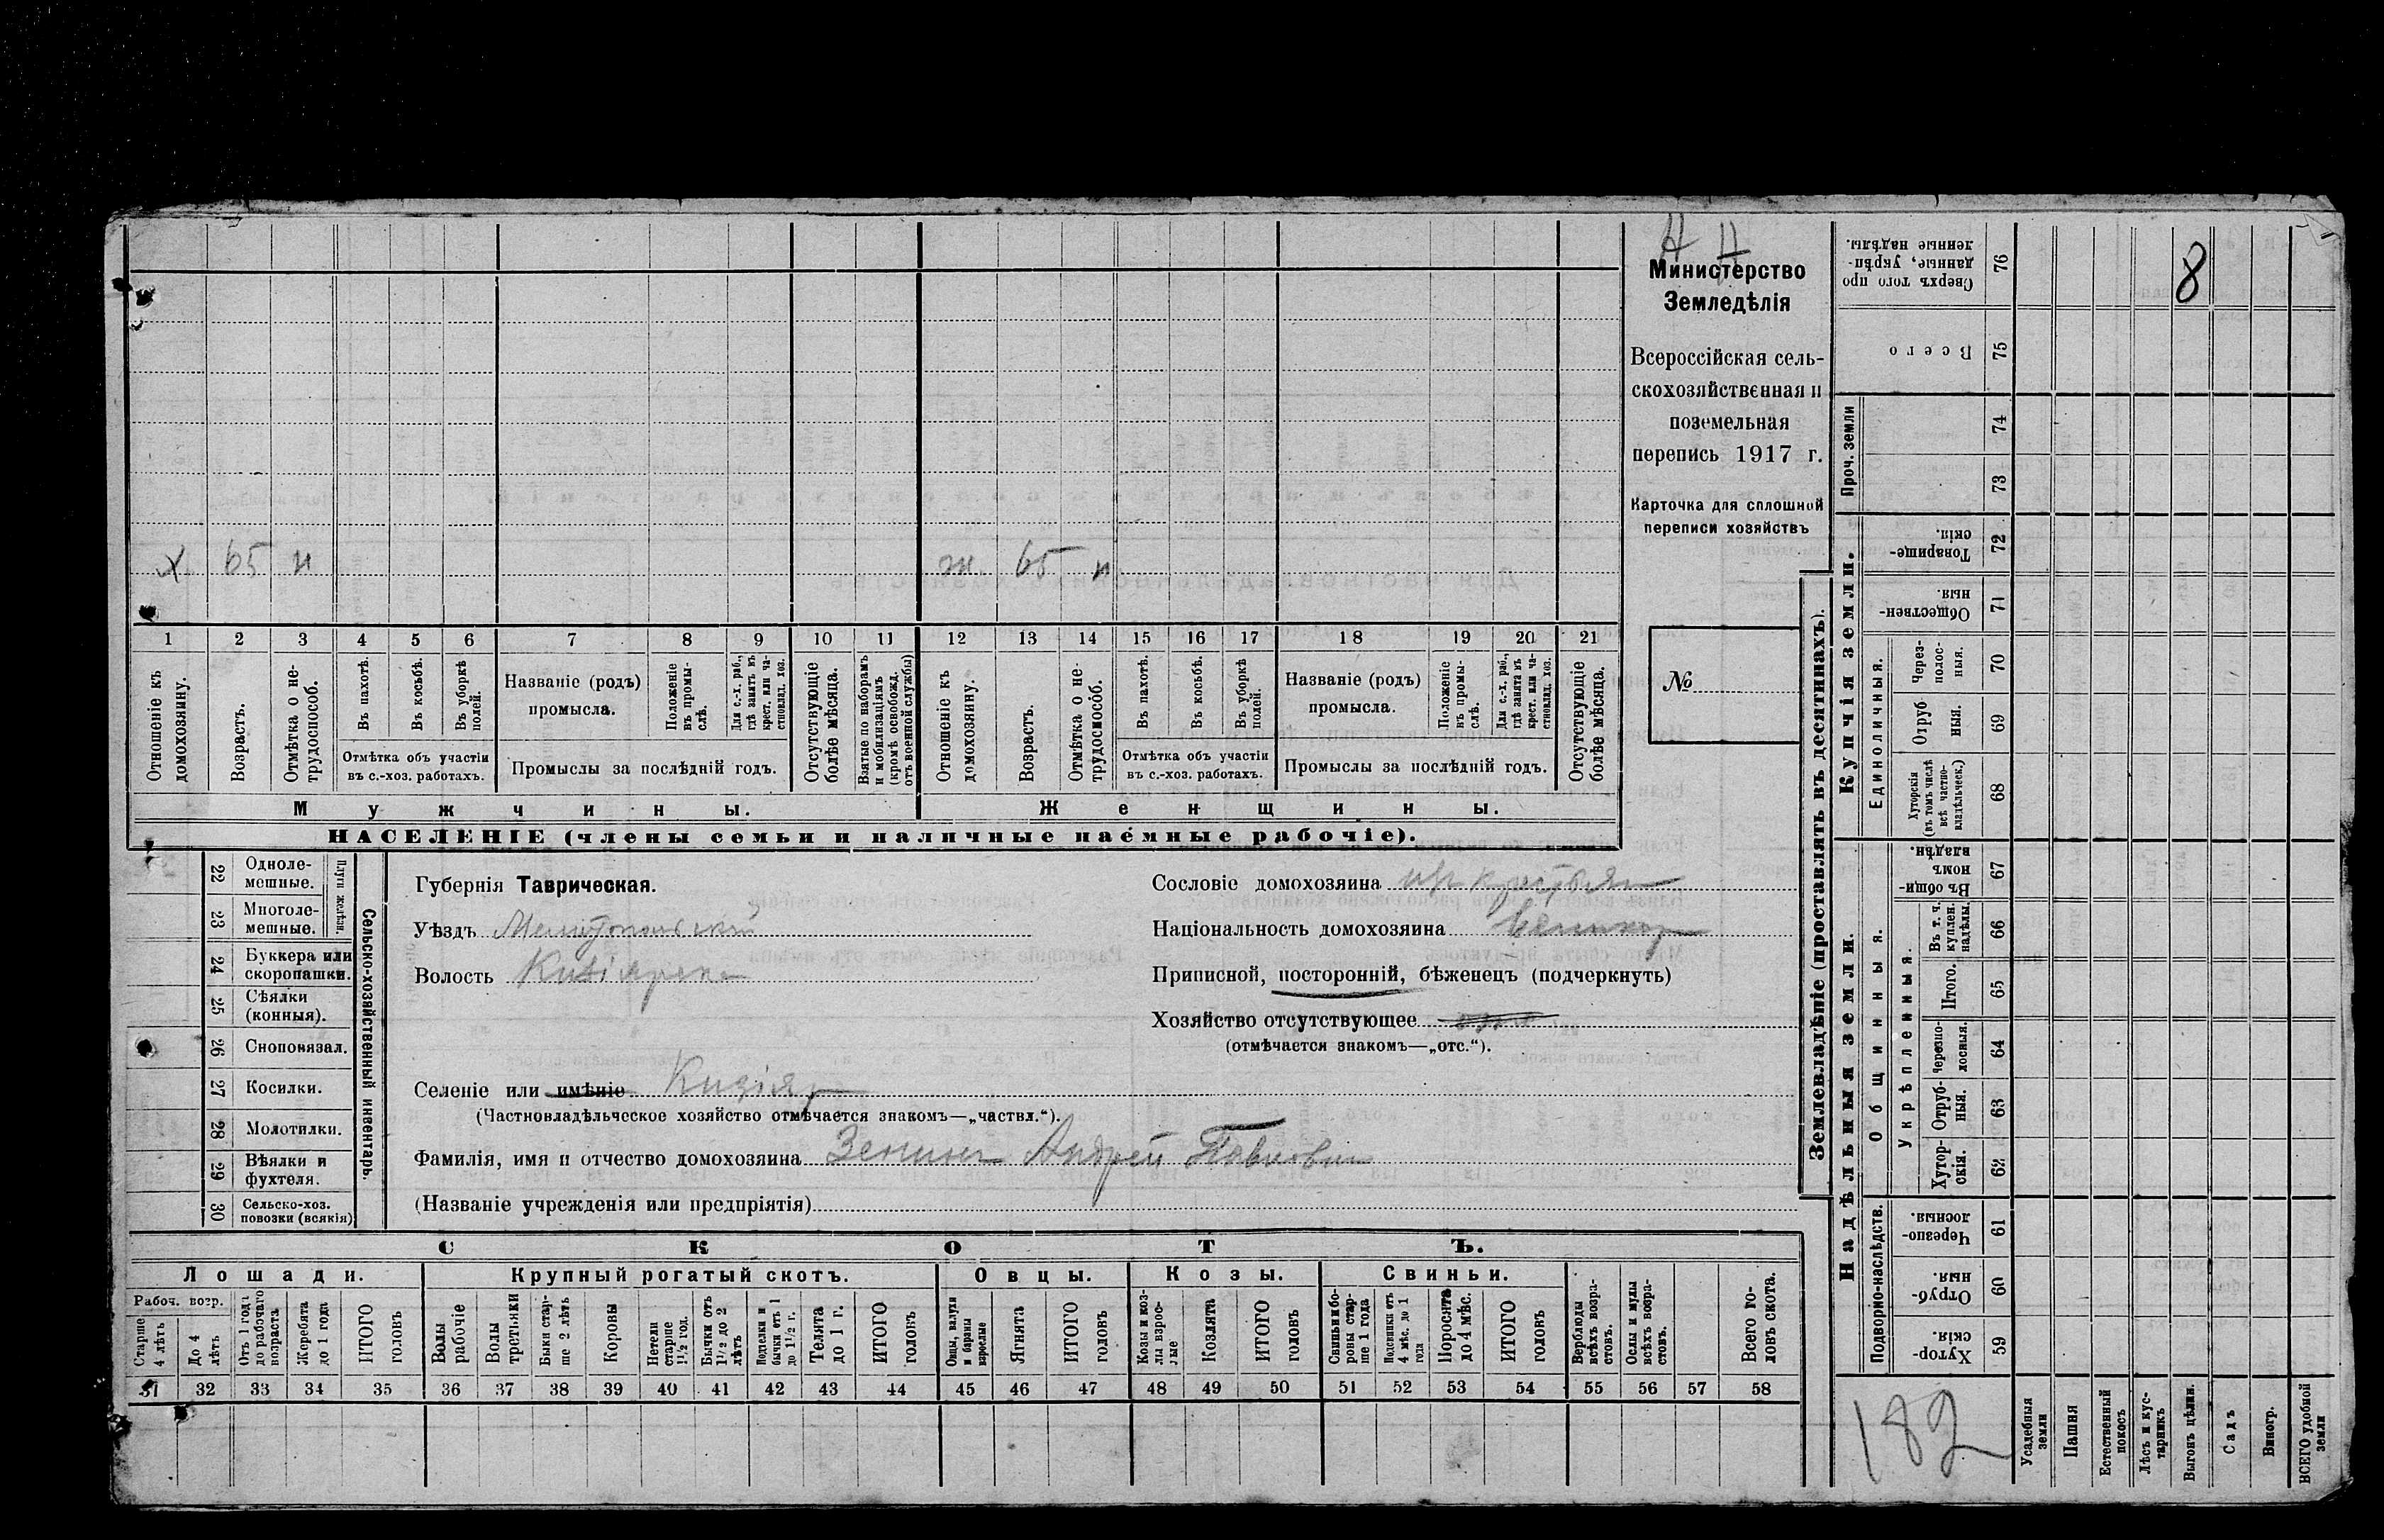 Н Н
Министерство
Земледѣлія
Всероссійская сель-
скохозяйственная и
поземельная
перепись 1917 г.
Карточка для сплошной
переписи хозяйствъ
№
х 65 н
ж 65 н
1 2 3 4 5 6 7 8 9 10 11 12 13 14 15 16 17 18 19 20 21
Отношеніе къ домохозяину.
Возрастъ.
Отмѣтка о не-трудоспособ.
Въ пахотѣ.
Въ косьбѣ.
Въ уборкѣ полей.
Отмѣтка объ участіи
въ с.-хоз. работахъ.
Названіе (родъ)
промысла.
Положеніе въ промы-слѣ.
Для с.-х. раб., гдѣ занятъ въ крест. или ча-стновлад. хоз.
Промыслы за послѣдній годъ.
Отсутствующіе болѣе мѣсяца.
Взятые по наборамъ и мобилизаціямъ (кромѣ освобожд. отъ военной службы)
Отношеніе къ домохозяину.
Возрастъ.
Отмѣтка о не-трудоспособ.
Въ пахотѣ.
Въ косьбѣ.
Въ уборкѣ полей.
Отмѣтка объ участіи
въ с.-хоз. работахъ.
Названіе (родъ)
промысла.
Положеніе въ промы-слѣ.
Для с.-х. раб., гдѣ занята въ крест. или ча-стновлад. хоз.
Промыслы за послѣдній годъ.
Отсутствующіе болѣе мѣсяца.
Мужчины.
Женщины.
НАСЕЛЕНІЕ (члены семьи и наличные наемные рабочіе).
22 Одноле-мешные.
23 Многоле-мешные.
Плуги желѣзн.
24 Буккера или скоропашки.
25 Сѣялки (конныя).
26 Сноповязал.
27 Косилки.
28 Молотилки.
29 Вѣялки и фухтеля.
30 Сельско-хоз. повозки (всякія)
Сельско-хозяйственный инвентарь.
Губернія Таврическая.
Уѣздъ Мелитопольскій
Волость Кизіярская
Селеніе или имѣніе Кизіяр
(Частновладѣльческое хозяйство отмѣчается знакомъ—„частвл.“).
Фамилія, имя и отчество домохозяина Зенинъ Андрей Павлович
(Названіе учрежденія или предпріятія)
Сословіе домохозяина из крестьян
Національность домохозяина Великор
Приписной, посторонній, бѣженецъ (подчеркнуть)
Хозяйство отсутствующее
(отмѣчается знакомъ—„отс.“).
СКОТЪ.
Лошади.
Крупный рогатый скотъ.
Овцы.
Козы.
Свиньи.
Рабоч. возр.
Старше 4 лѣтъ
До 4 лѣтъ
Отъ 1 года до рабочаго возраста
Жеребята до 1 года
ИТОГО головъ
Волы рабочіе
Волы третьяки
Быки стар-ше 2 лѣтъ
Коровы
Нетели старше 1½ год.
Бычки отъ 1½ до 2 лѣтъ
Подтелки и бычки отъ 1 до 1½ г.
Телята до 1 г.
ИТОГО головъ
Овцы, валухи и бараны взрослые
Ягнята
ИТОГО головъ
Козы и коз-лы взрос-лые
Козлята
ИТОГО головъ
Свиньи и бо-ровы стар-ше 1 года
Подсвинки отъ 4 мѣс. до 1 года
Поросята до 4 мѣс.
ИТОГО головъ
Верблюды всѣхъ возра-стовъ.
Ослы и мулы всѣхъ возра-стовъ.
Всего го-ловъ скота.
31 32 33 34 35 36 37 38 39 40 41 42 43 44 45 46 47 48 49 50 51 52 53 54 55 56 57 58
Землевладѣніе (проставлять въ десятинахъ).
Надѣльныя земли.
Купчія земли.
Проч. земли
Подворно-наслѣдств.
Общинныя.
Укрѣпленныя.
Единоличныя.
Сверхъ того про данные, укрѣп-ленные надѣлы. 76
Всего 75
74
73
Товарище-скія. 72
Обществен-ныя. 71
Через-полос-ныя. 70
Отруб ныя. 69
Хуторскія (въ томъ числѣ всѣ частно-владѣльческ.) 68
Въ общи-номъ владѣн. 67
Въ т. ч. куплен. надѣлы. 66
Итого. 65
Черезпо-лосныя. 64
Отруб-ныя. 63
Хутор-скія. 62
Черезпо-лосныя. 61
Отруб-ныя. 60
Хутор-скія. 59
8
182
Усадебныя земли
Пашня
Естественный покосъ
Лѣсъ и кус-тарникъ
Выгонъ цѣлин.
Садъ
Виногр.
ВСЕГО удобной земли